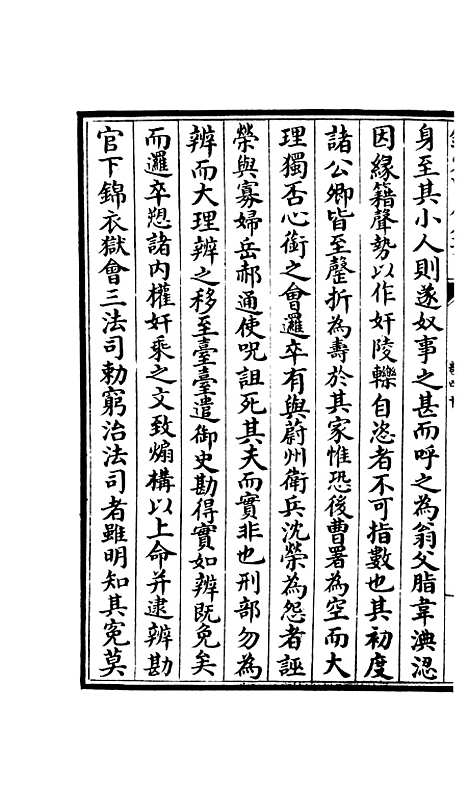 身至其小人則遂奴事之甚而呼之為翁父脂韋淟涊
因緣籍聲勢以作奸陵轢自恣者不可指數也其初度
諸公卿皆至罄折為壽於其家惟恐後曹署為空而大
理獨否心銜之會邏卒有與蔚州衛兵沈榮為怨者誣
榮與寡婦岳郝通使呪詛死其夫而實非也刑部勿為
辨而大理辨之移至臺臺遣御史勘得實如辨既免矣
而邏卒愬諸内權奸乘之文致煽構以上命并逮辨勘
官下錦衣獄會三法司勅窮治法司者雖明知其冤莫